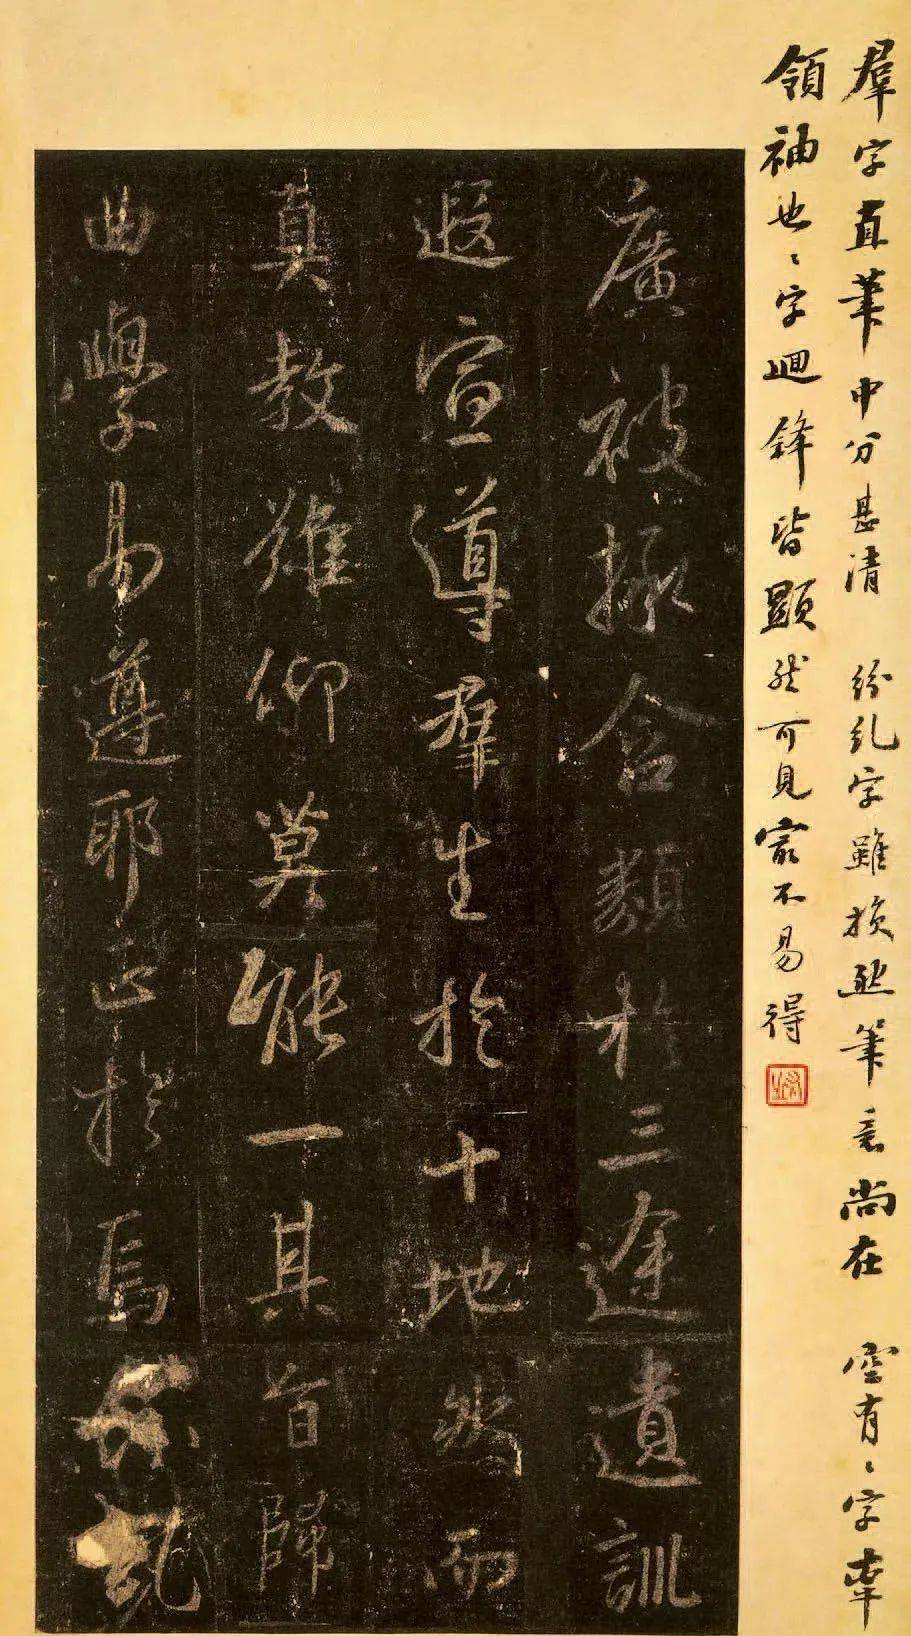 羣字直筆中分甚清 紛糺字雖損然筆意尚在 空有〻字
領袖也〻字迴鋒皆顯然可見㝡不易得
廣被拯含類於三途遺訓
遐宣導羣生於十地然而
真教難仰莫能一其旨歸
曲學易遵耶正於焉紛糺